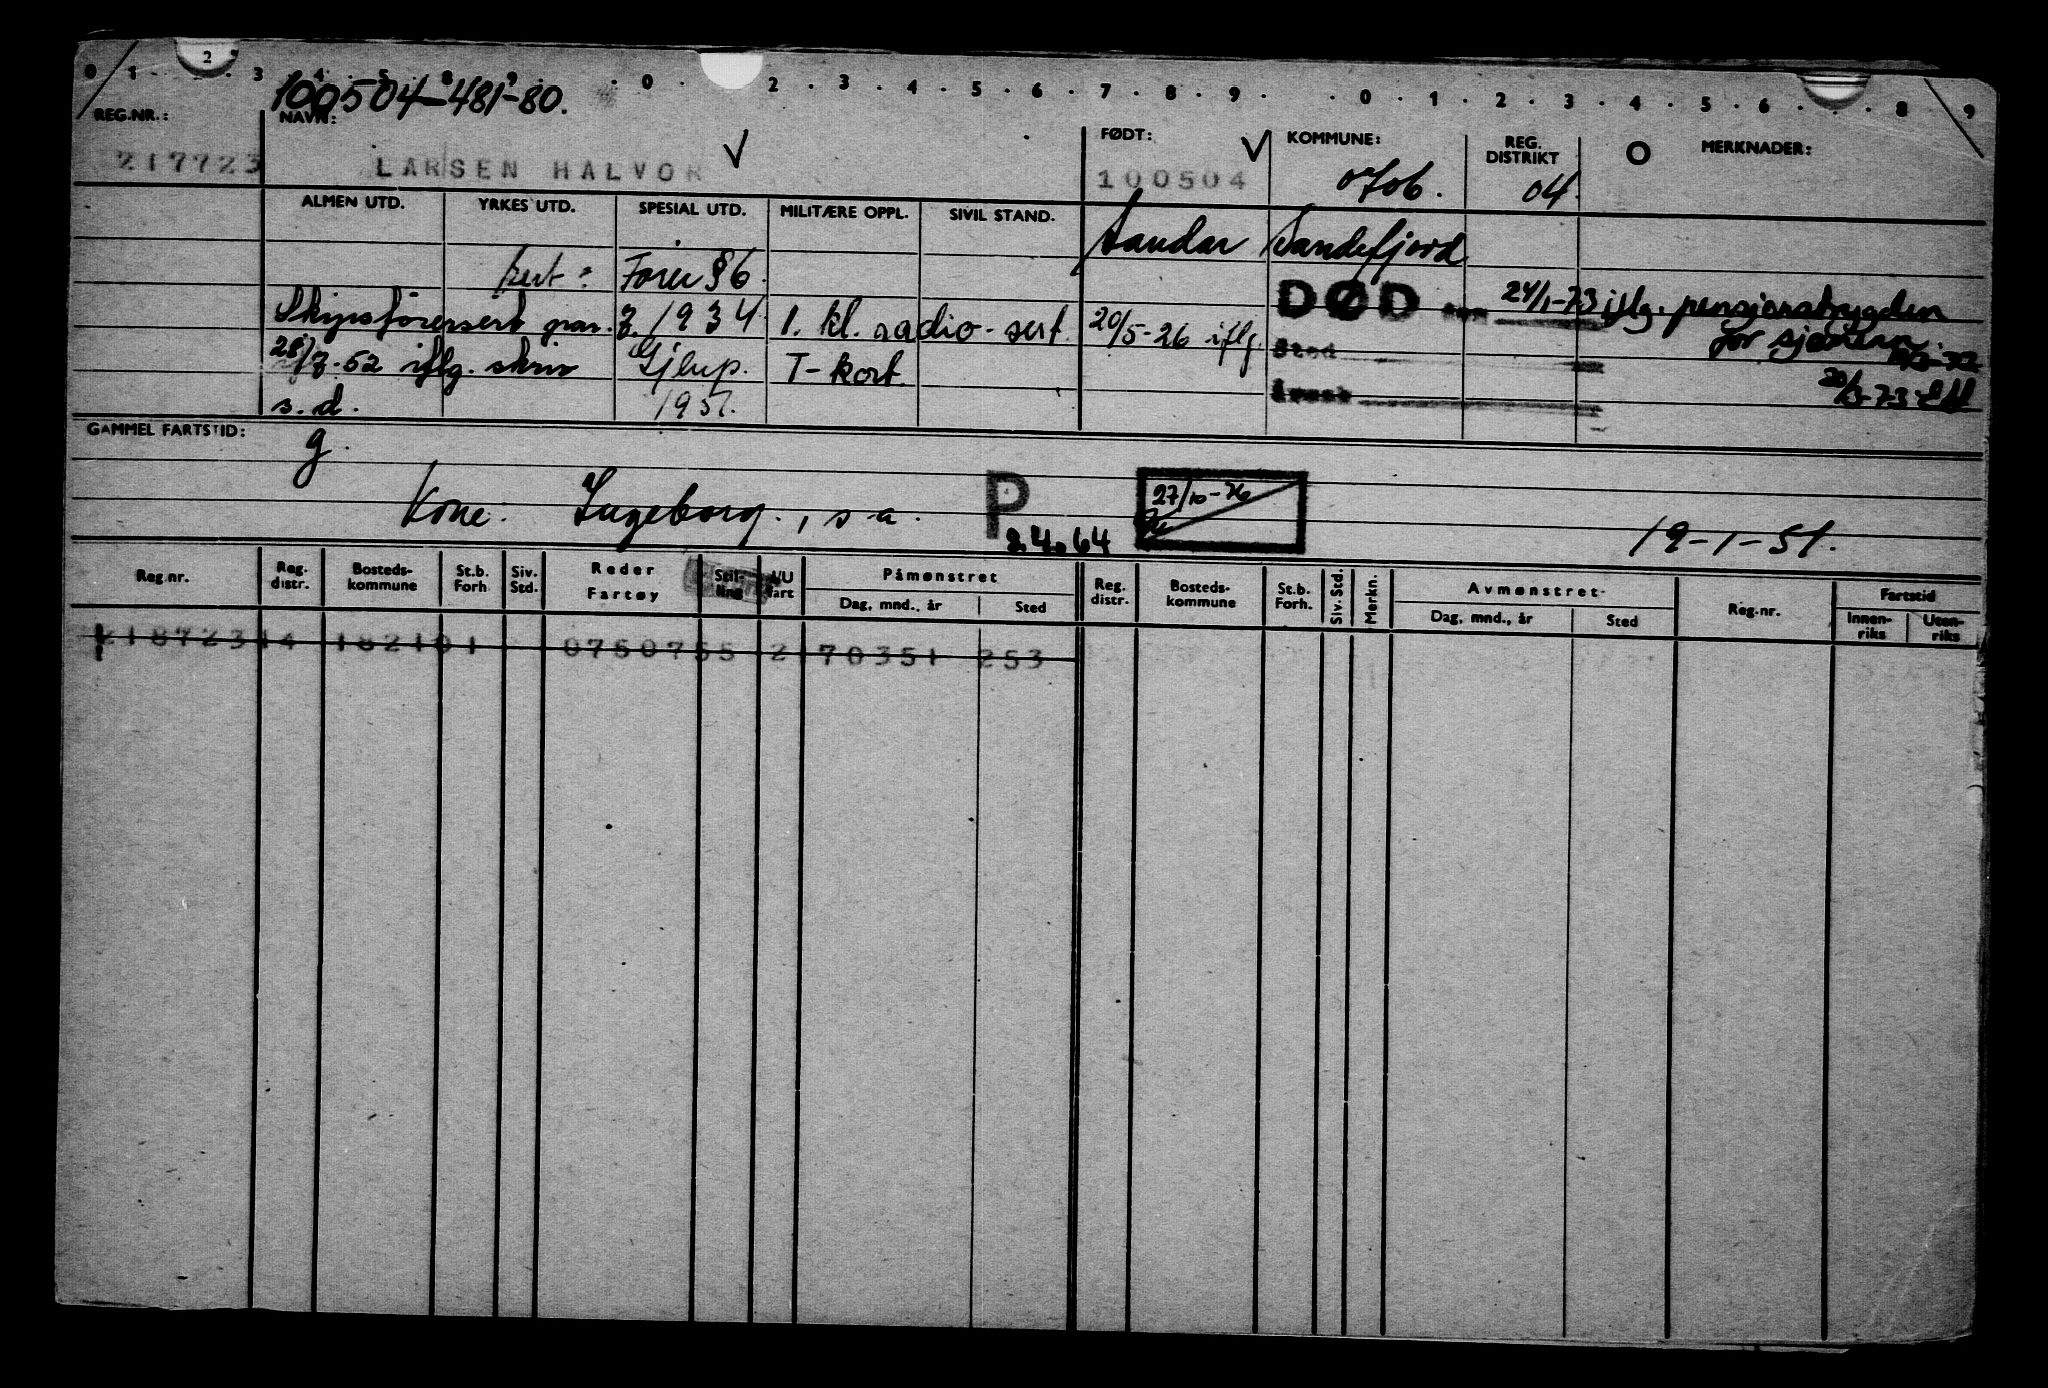 0 1 2 3 4 5 8 9 0 2 3 4 5 6 7 8 9 0 1 2 3 4 5 6 8 9
100504-481-80.
REG.NR.: NAVN: FØDT: KOMMUNE: REG. DISTRIKT O MERKNADER:
217723 LARSEN HALVOR 100504 0706. 04
ALMEN UTD. YRKES UTD. SPESIAL UTD. MILITÆRE OPPL. SIVIL STAND. Sandar Sandefjord
sert: Fører §6.
Skipsførersert 1934 1. kl. radio-sert. 20/5-26 iflg. DØD 24/1-73 iflg. pensjonstrygden for sjømenn.
28/7-52 iflg. skriv T-kort Sted
s. d. 1951. 20/3-73 EM
GAMMEL FARTSTID: g.
Kone: Ingeborg., s.a. P 27/10-76
2.4.64 19-1-51.
Reg.nr. Reg. distr. Bosteds-kommune St.b. Forh. Siv. Std. Reder Fartøy Stilling I/U fart Påmønstret Dag, mnd., år Sted Reg. distr. Bosteds-kommune St.b. Forh. Siv. Std. Merkn. Avmønstret Dag, mnd., år Sted Reg.nr. Fartstid Innen-riks Uten-riks
21872314 182101 0750755 2 170351 253